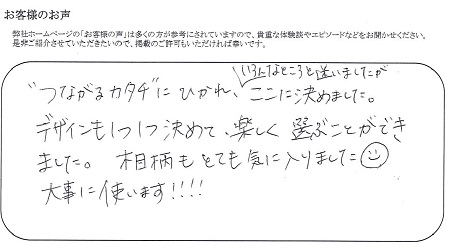 お客様のお声
弊社ホームページの「お客様の声」は多くの方が参考にされていますので、貴重な体験談やエピソードなどをお聞かせください。
是非ご紹介させていただきたいので、掲載のご許可もいただければ幸いです。
いろんなところと迷いましたが
"つながるカタチ"にひかれ、ここに決めました。
デザインも1つ1つ決めて、楽しく選ぶことができ
ました。木目柄もとても気に入りました
大事に使います!!!!